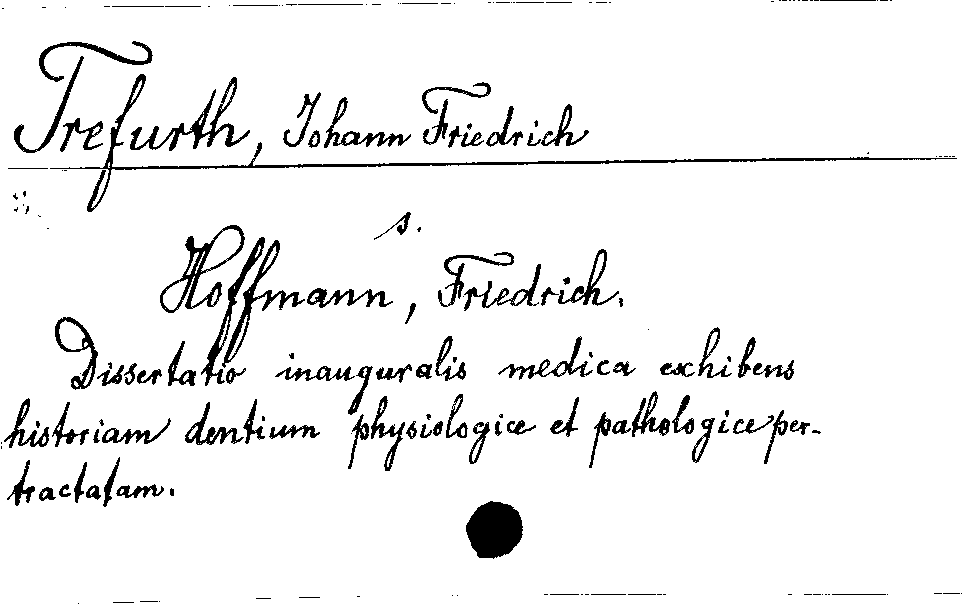 Trefurth, Johann Friedrich
s.
Hoffmann, Friedrich.
Dissertatio inauguralis medica exhibens
historiam dentium physiologice et pathologice per-
tractatam.